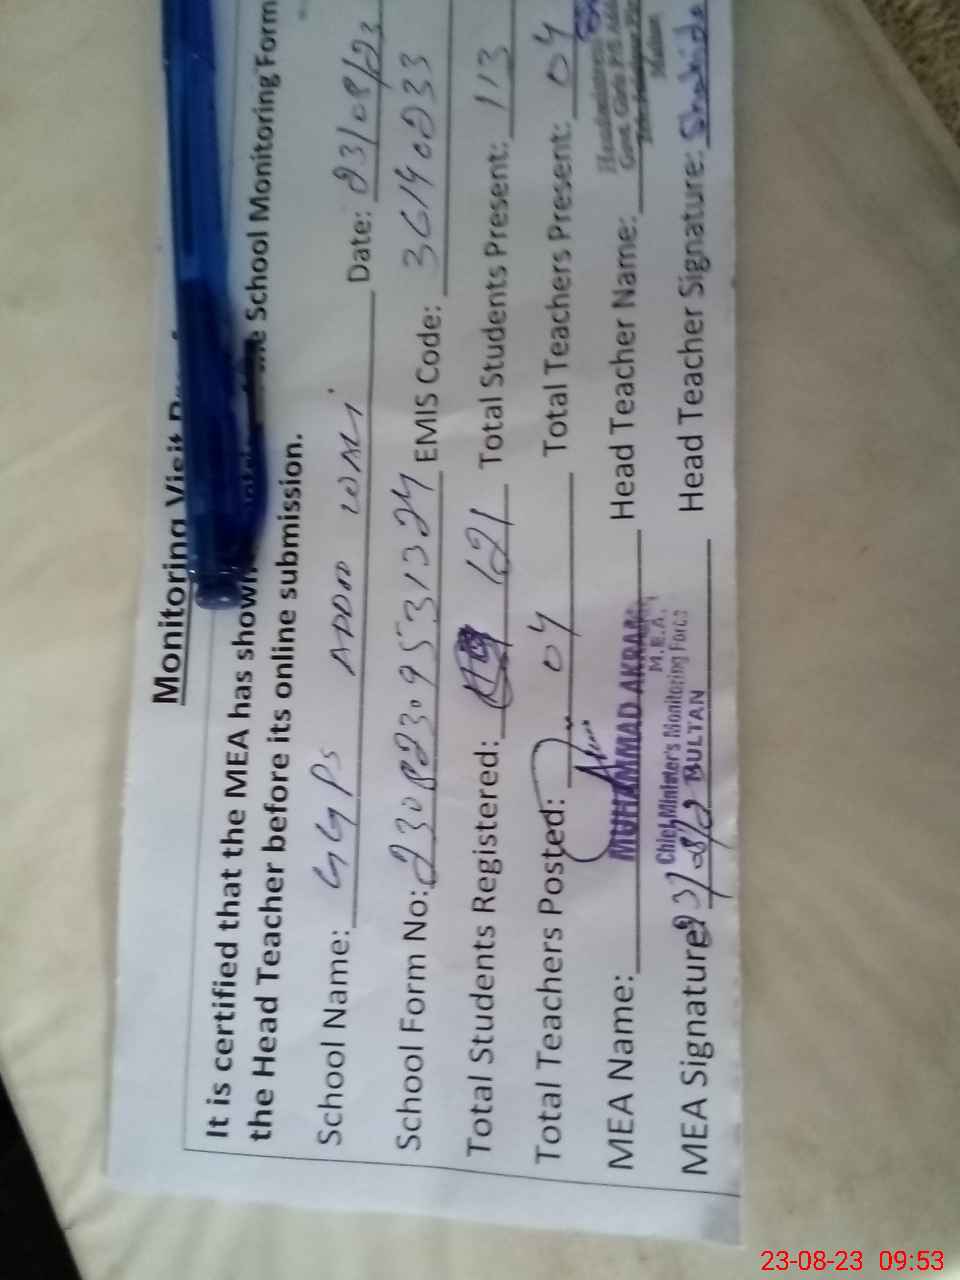 Monitoring Visit
It is certified that the MEA has shown School Monitoring Form
the Head Teacher before its online submission.
School Name: GGPS ADDO WALI Date: 23/08/23
School Form No: 23082309531324 EMIS Code: 36140033
Total Students Registered: 121 Total Students Present: 113
Total Teachers Posted: 04 Total Teachers Present: 04
MEA Name: MUHAMMAD AKRAM Head Teacher Name: Headmistress
M.E.A.
Chief Minister's Monitoring Force
MULTAN
MEA Signature: 23/8/2 Head Teacher Signature: Shahida
23-08-23 09:53